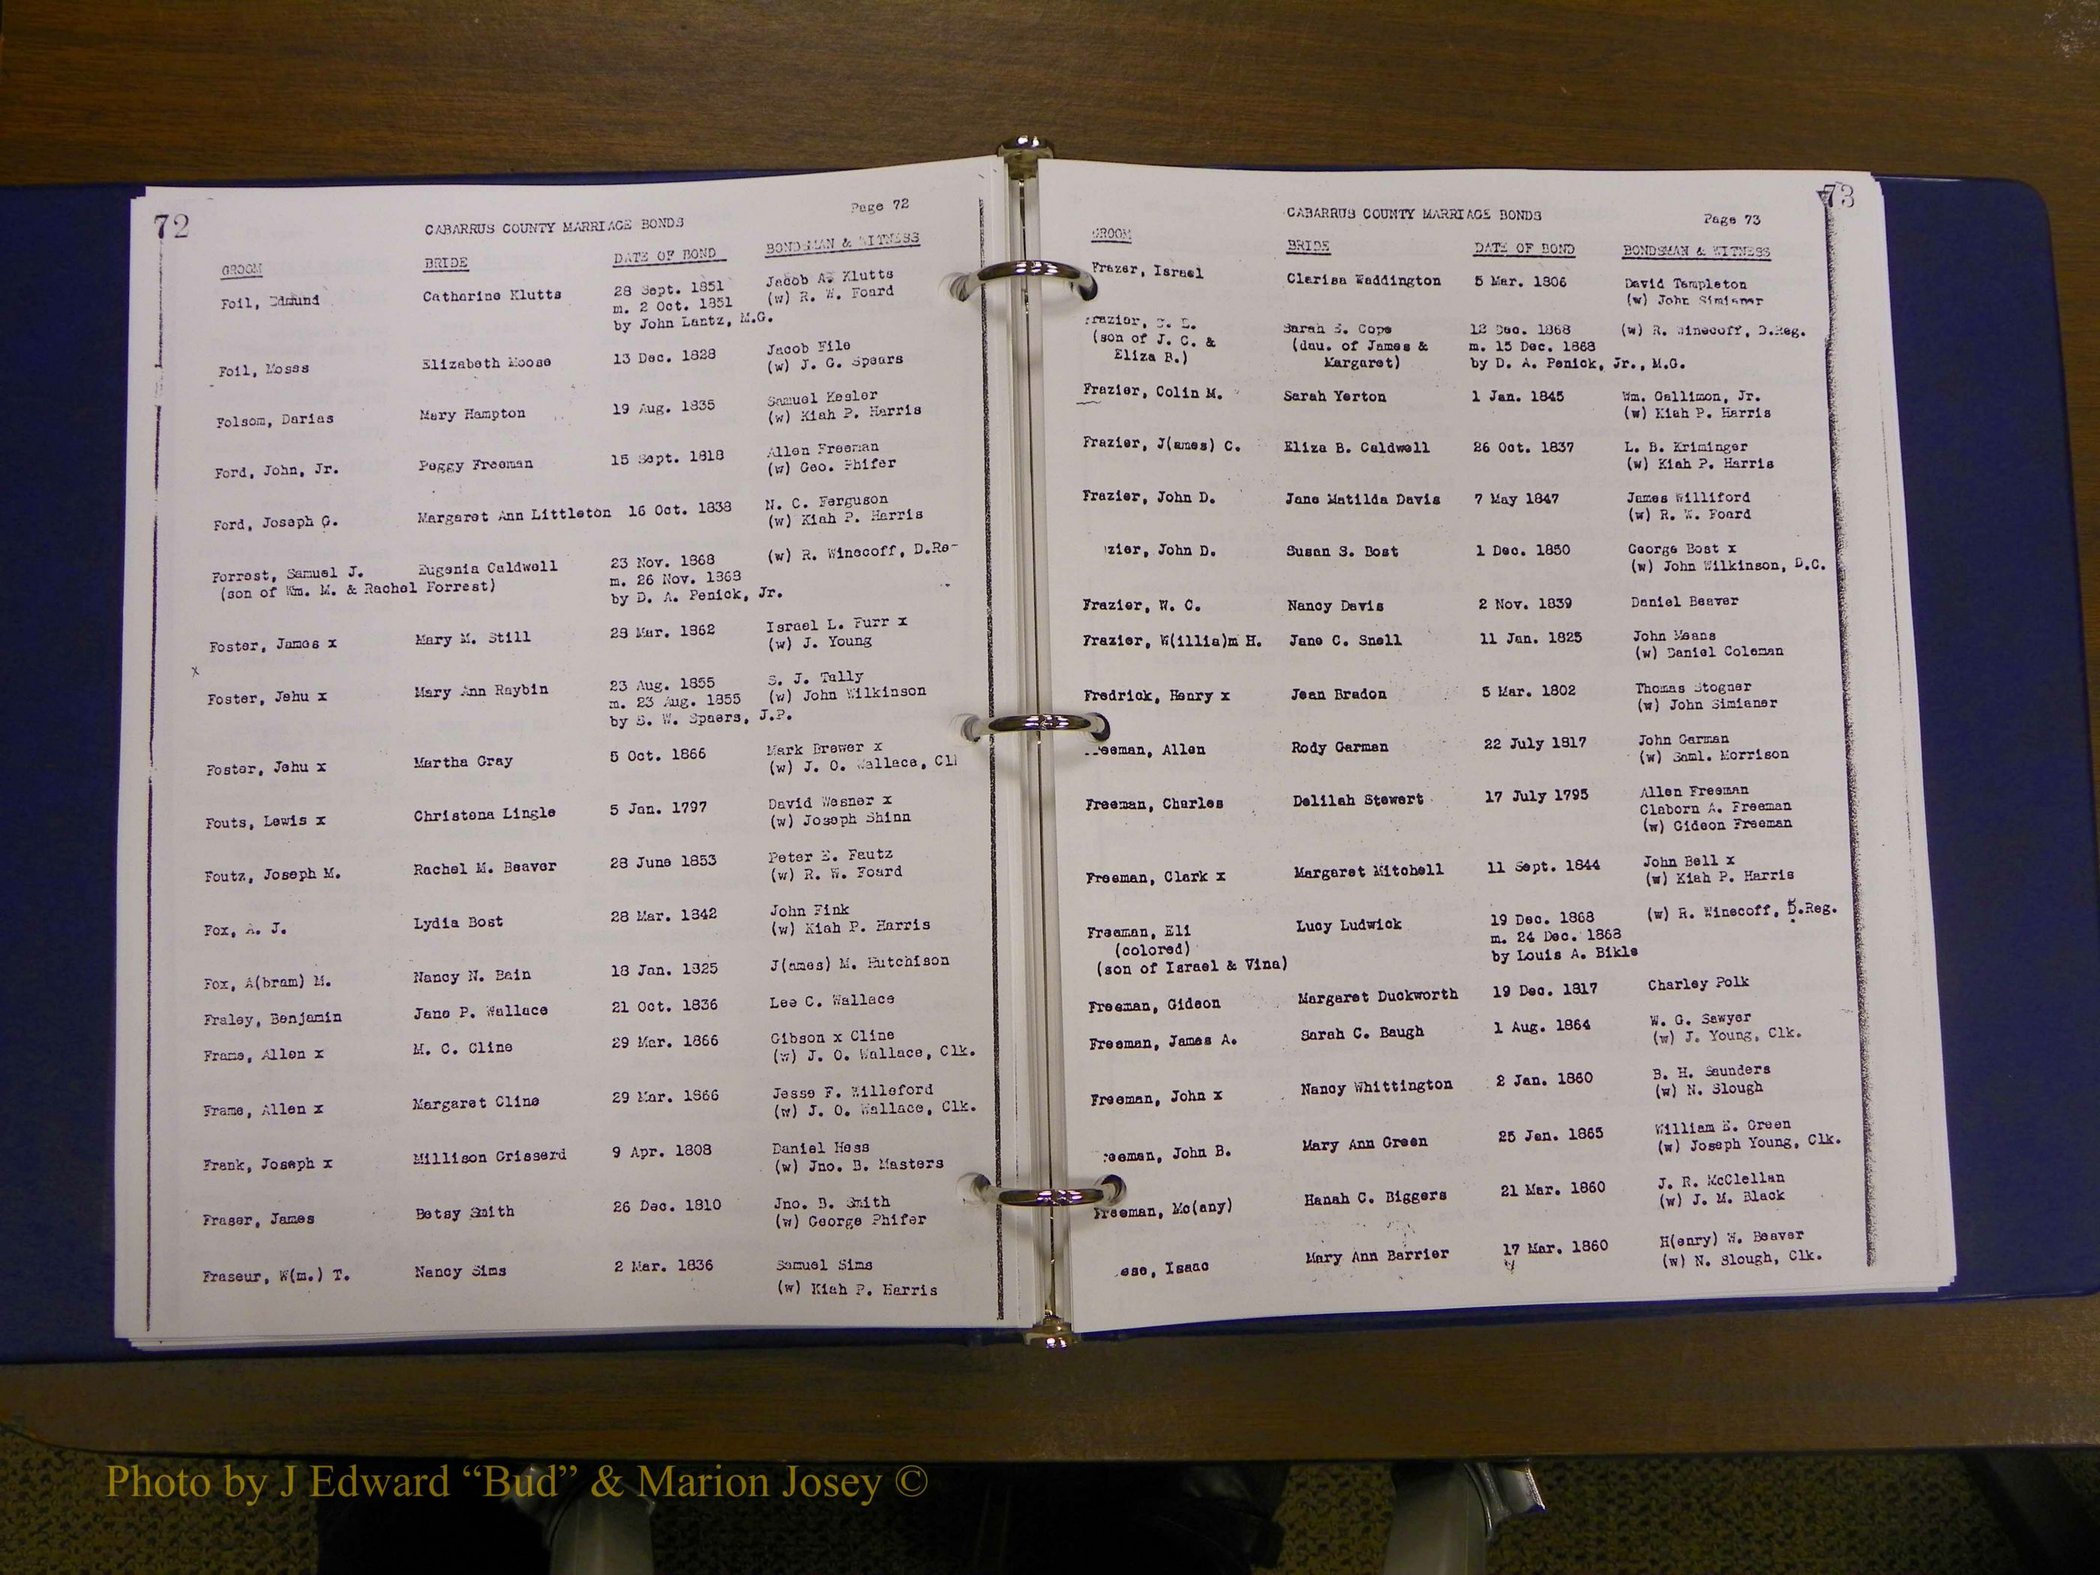 72
CABARRUS COUNTY MARRIAGE BONDS Page 72
GROOM BRIDE DATE OF BOND BONDSMAN & WITNESS
Foil, Edmund Catharine Klutts 28 Sept. 1851 Jacob A. Klutts
m. 2 Oct. 1851 (w) R. W. Foard
by John Lantz, M.G.
Foil, Moses Elizabeth Moose 13 Dec. 1828 Jacob File
(w) J. G. Spears
Folsom, Darias Mary Hampton 19 Aug. 1835 Samuel Kesler
(w) Kiah P. Harris
Ford, John, Jr. Peggy Freeman 15 Sept. 1818 Allen Freeman
(w) Geo. Phifer
Ford, Joseph G. Margaret Ann Littleton 16 Oct. 1838 N. C. Ferguson
(w) Kiah P. Harris
Forrest, Samuel J. Eugenia Caldwell 23 Nov. 1868 (w) R. Winecoff, D.Re
(son of Wm. M. & Rachel Forrest) m. 26 Nov. 1868
by D. A. Penick, Jr.
Foster, James x Mary M. Still 28 Mar. 1862 Israel L. Furr x
(w) J. Young
x
Foster, Jehu x Mary Ann Raybin 23 Aug. 1855 S. J. Tally
m. 23 Aug. 1855 (w) John Wilkinson
by S. W. Spaers, J.P.
Foster, Jehu x Martha Gray 5 Oct. 1866 Mark Brewer x
(w) J. O. Wallace, Cl
Fouts, Lewis x Christena Lingle 5 Jan. 1797 David Wesner x
(w) Joseph Shinn
Foutz, Joseph M. Rachel M. Beaver 28 June 1853 Peter E. Fautz
(w) R. W. Foard
Fox, A. J. Lydia Bost 28 Mar. 1842 John Fink
(w) Kiah P. Harris
Fox, A(bram) M. Nancy N. Bain 18 Jan. 1825 J(ames) M. Hutchison
Fraley, Benjamin Jane P. Wallace 21 Oct. 1836 Lee C. Wallace
Frame, Allen x M. C. Cline 29 Mar. 1866 Gibson x Cline
(w) J. O. Wallace, Clk.
Frame, Allen x Margaret Cline 29 Mar. 1866 Jesse F. Willeford
(w) J. O. Wallace, Clk.
Frank, Joseph x Millison Grisserd 9 Apr. 1808 Daniel Hess
(w) Jno. B. Masters
Fraser, James Betsy Smith 26 Dec. 1810 Jno. B. Smith
(w) George Phifer
Fraseur, W(m.) T. Nancy Sims 2 Mar. 1836 Samuel Sims
(w) Kiah P. Harris
73
CABARRUS COUNTY MARRIAGE BONDS Page 73
GROOM BRIDE DATE OF BOND BONDSMAN & WITNESS
Frazer, Israel Clarisa Waddington 5 Mar. 1806 David Templeton
(w) John Simianer
Frazier, Sarah S. Cope 12 Dec. 1868 (w) R. Winecoff, D.Reg.
(son of J. C. & (dau. of James & m. 15 Dec. 1868
Eliza B.) Margaret) by D. A. Penick, Jr., M.G.
Frazier, Colin M. Sarah Yerton 1 Jan. 1845 Wm. Gallimon, Jr.
(w) Kiah P. Harris
Frazier, J(ames) C. Eliza B. Caldwell 26 Oct. 1837 L. B. Kriminger
(w) Kiah P. Harris
Frazier, John D. Jane Matilda Davis 7 May 1847 James Williford
(w) R. W. Foard
zier, John D. Susan S. Bost 1 Dec. 1850 George Bost x
(w) John Wilkinson, D.C.
Frazier, W. C. Nancy Davis 2 Nov. 1839 Daniel Beaver
Frazier, W(illia)m H. Jane C. Snell 11 Jan. 1825 John Means
(w) Daniel Coleman
Fredrick, Henry x Jean Bradon 5 Mar. 1802 Thomas Stogner
(w) John Simianer
reeman, Allen Rody Garman 22 July 1817 John Garman
(w) Saml. Morrison
Freeman, Charles Delilah Stewert 17 July 1795 Allen Freeman
Claborn A. Freeman
(w) Gideon Freeman
Freeman, Clark x Margaret Mitchell 11 Sept. 1844 John Bell x
(w) Kiah P. Harris
Freeman, Eli Lucy Ludwick 19 Dec. 1868 (w) R. Winecoff, D.Reg.
(colored) m. 24 Dec. 1868
(son of Israel & Vina) by Louis A. Bikle
Freeman, Gideon Margaret Duckworth 19 Dec. 1817 Charley Polk
Freeman, James A. Sarah C. Baugh 1 Aug. 1864 W. G. Sawyer
(w) J. Young, Clk.
Freeman, John x Nancy Whittington 2 Jan. 1860 B. H. Saunders
(w) N. Slough
reeman, John B. Mary Ann Green 25 Jan. 1865 William E. Green
(w) Joseph Young, Clk.
Freeman, Mc(any) Hanah C. Biggers 21 Mar. 1860 J. R. McClellan
(w) J. M. Black
ese, Isaac Mary Ann Barrier 17 Mar. 1860 H(enry) W. Beaver
(w) N. Slough, Clk.
Photo by J Edward “Bud” & Marion Josey ©